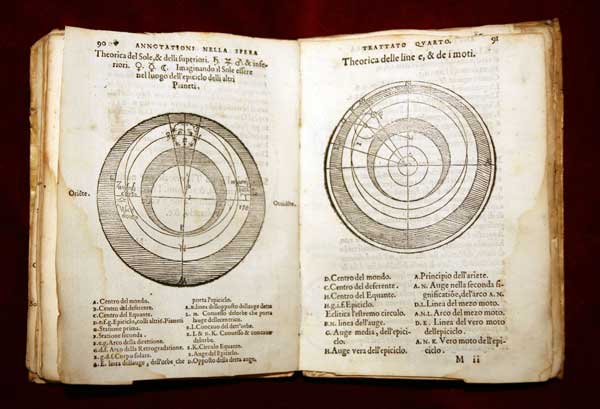 90 ANNOTATIONI NELLA SPERA
Theorica del Sole, & delli superiori. ♄ ♃ ♂ & infe-
riori. ♀ ☿ ☾. Imaginando il Sole essere
nel luogo dell'epiciclo delli altri
Pianeti.
Oriēte.
A. Centro del mondo.
B. Centro del deferente.
C. Centro del Equante.
Epiciclo, colli altri Pianeti
Statione prima.
Statione seconda.
Arco della direttione.
g.d.f. Arco della Retrogradatione.
Corpo solare.
linea dell'auge, dell'orbe che
porta l'epiciclo.
linea dell'opposito dell'auge detta
Conuesso delorbe che porta
lauge del eccentrico.
Concauo del dett'orbe.
Conuesso & concauo
delorbe.
Circulo Equante.
Auge del Epiciclo.
Opposito della detta auge.
TRATTATO QUARTO. 91
Theorica delle line e, & de i moti.
D. Centro del mondo.
C. Centro del deferente.
H. Centro del Equante.
g.i.f. Epiciclo.
Eclitica l'estremo circulo.
B.N. linea dell'auge.
G. Auge media, dell'epici-
clo.
H. Auge vera dell'epiciclo.
A. Principio dell'ariete.
A. N. Auge nella seconda si
gnificatiōe, del'arco A. N.
D.L. Linea del mezo moto.
A.N.L. Arco del mezo moto.
D. K. Linea del vero moto
dell'epiciclo.
A. N. K. Vero moto dell'epi-
ciclo.
M ii